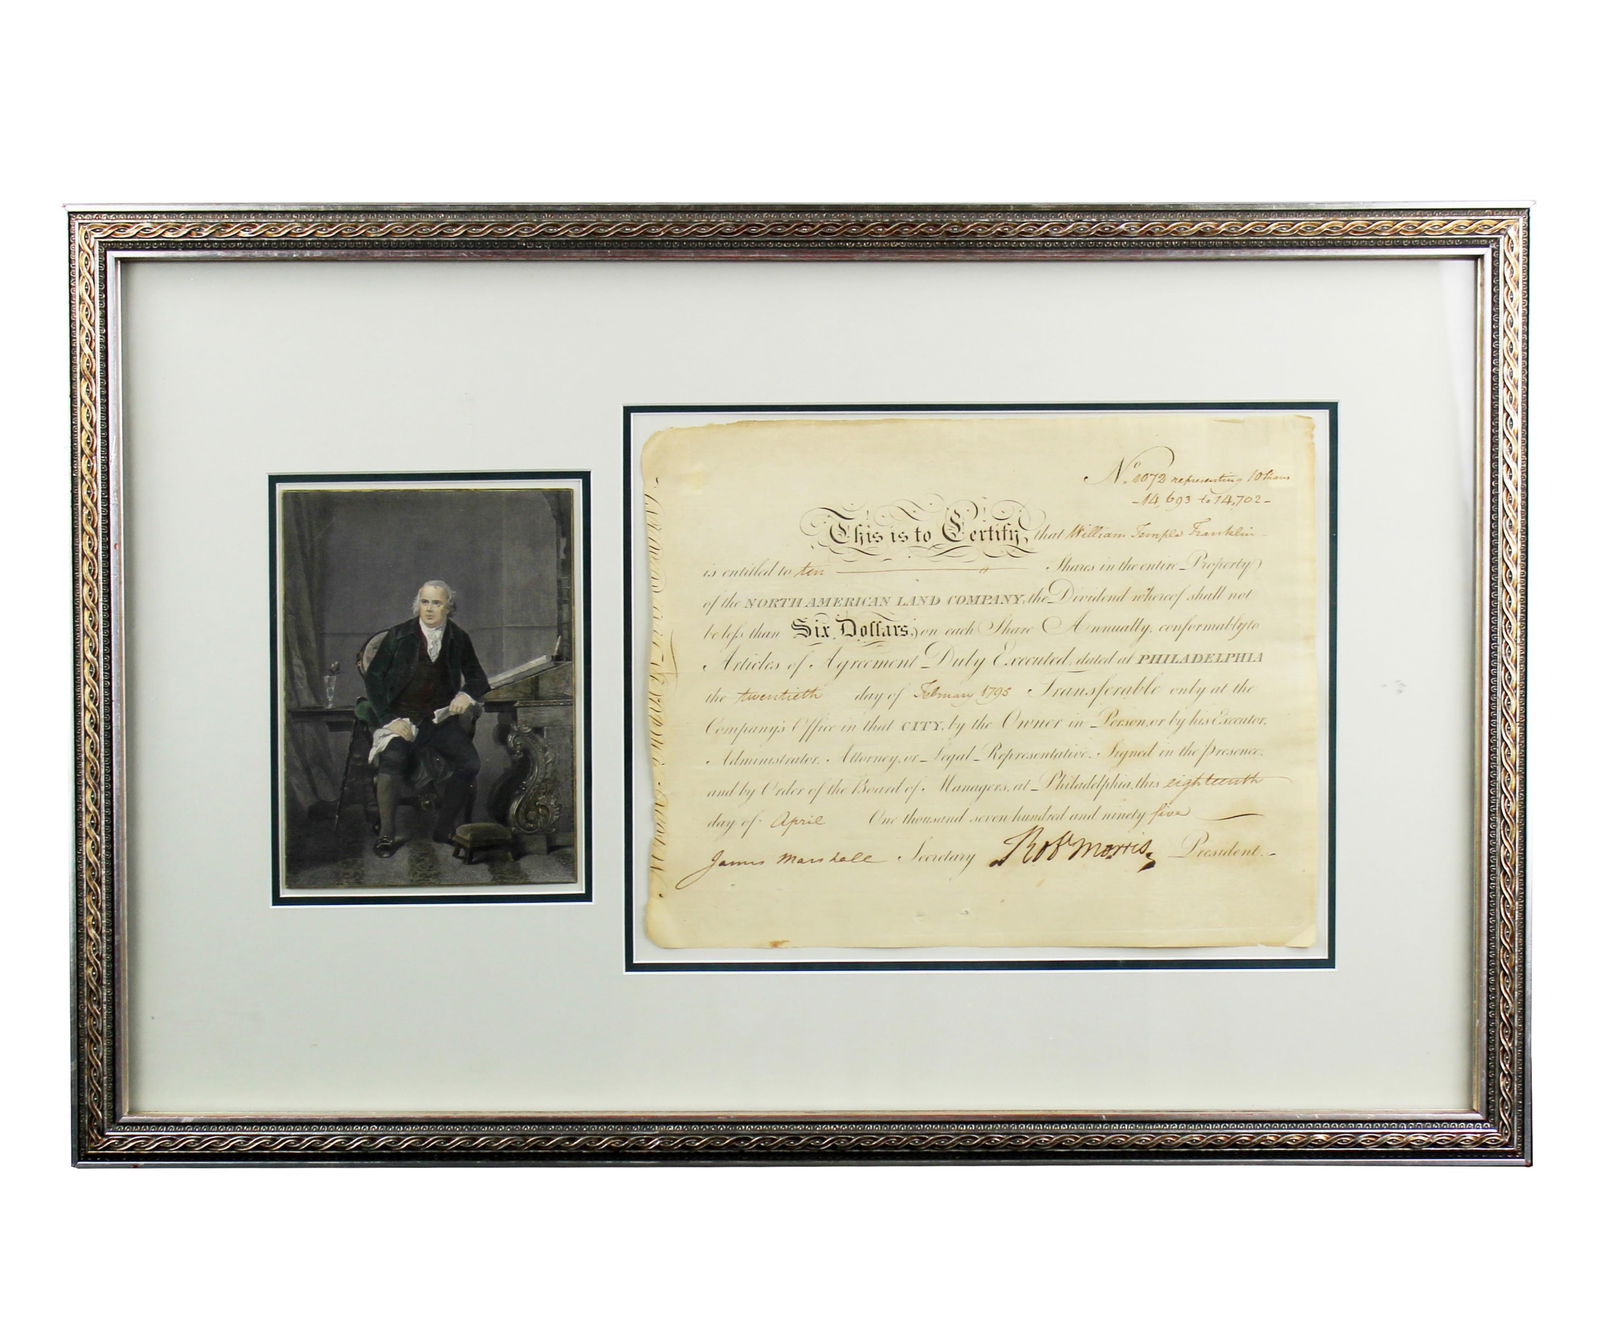 No. 1072 representing 10 Shares
- 14,693 to 14,702 -
This is to Certify, that William Temple Franklin
is entitled to ten Shares in the entire Property
of the NORTH AMERICAN LAND COMPANY, the Dividend whereof shall not
be less than Six Dollars, on each Share Annually, conformably to
Articles of Agreement Duly Executed, dated at PHILADELPHIA
the twentieth day of February 1795 Transferable only at the
Company's Office in that CITY, by the Owner in Person, or by his Executor,
Administrator, Attorney, or Legal Representative. Signed in the presence,
and by Order of the Board of Managers, at Philadelphia, this eighteenth
day of April One thousand seven hundred and ninety five
James Marshall Secretary Robt Morris President.